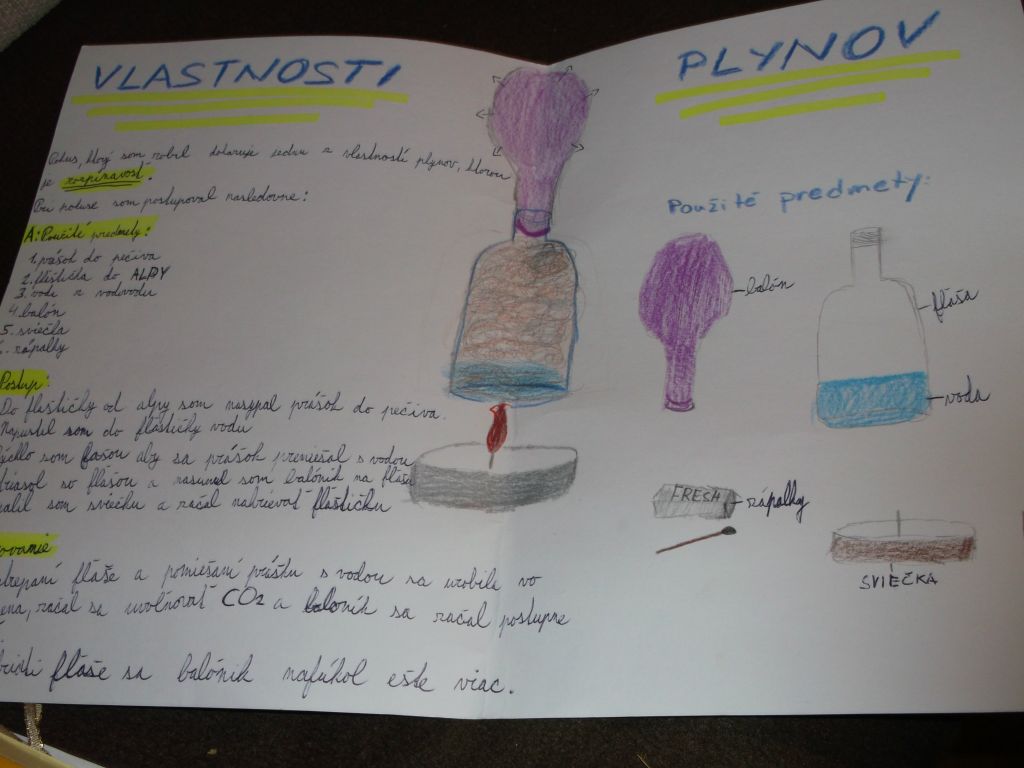 VLASTNOSTI PLYNOV
Pokus, ktorý som robil dokazuje jednu z vlastností plynov, ktorou
je rozpínavosť.
Pri pokuse som postupoval nasledovne:
A: Použité predmety:
1. prášok do pečiva
2. fľaštička do ALPY
3. voda z vodovodu
4. balón
5. sviečka
zápalky
Postup:
Do fľaštičky od alpy som nasypal prášok do pečiva.
Napustil som do fľaštičky vodu
som fľašou aby sa prášok premiešal s vodou
so fľašou a nasunul som balónik na fľašu
som sviečku a začal nahrievať fľaštičku
fľaše a pomiešaní prášku s vodou sa urobila vo
začal sa uvoľňovať CO2 a balónik sa začal postupne
fľaše sa balónik nafúkol ešte viac.
Použité predmety:
balón
fľaša
voda
FRESH
zápalky
SVIEČKA